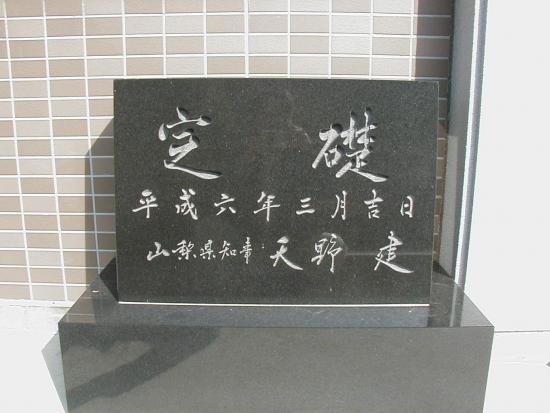 定礎
平成六年三月吉日
山梨県知事 天野建